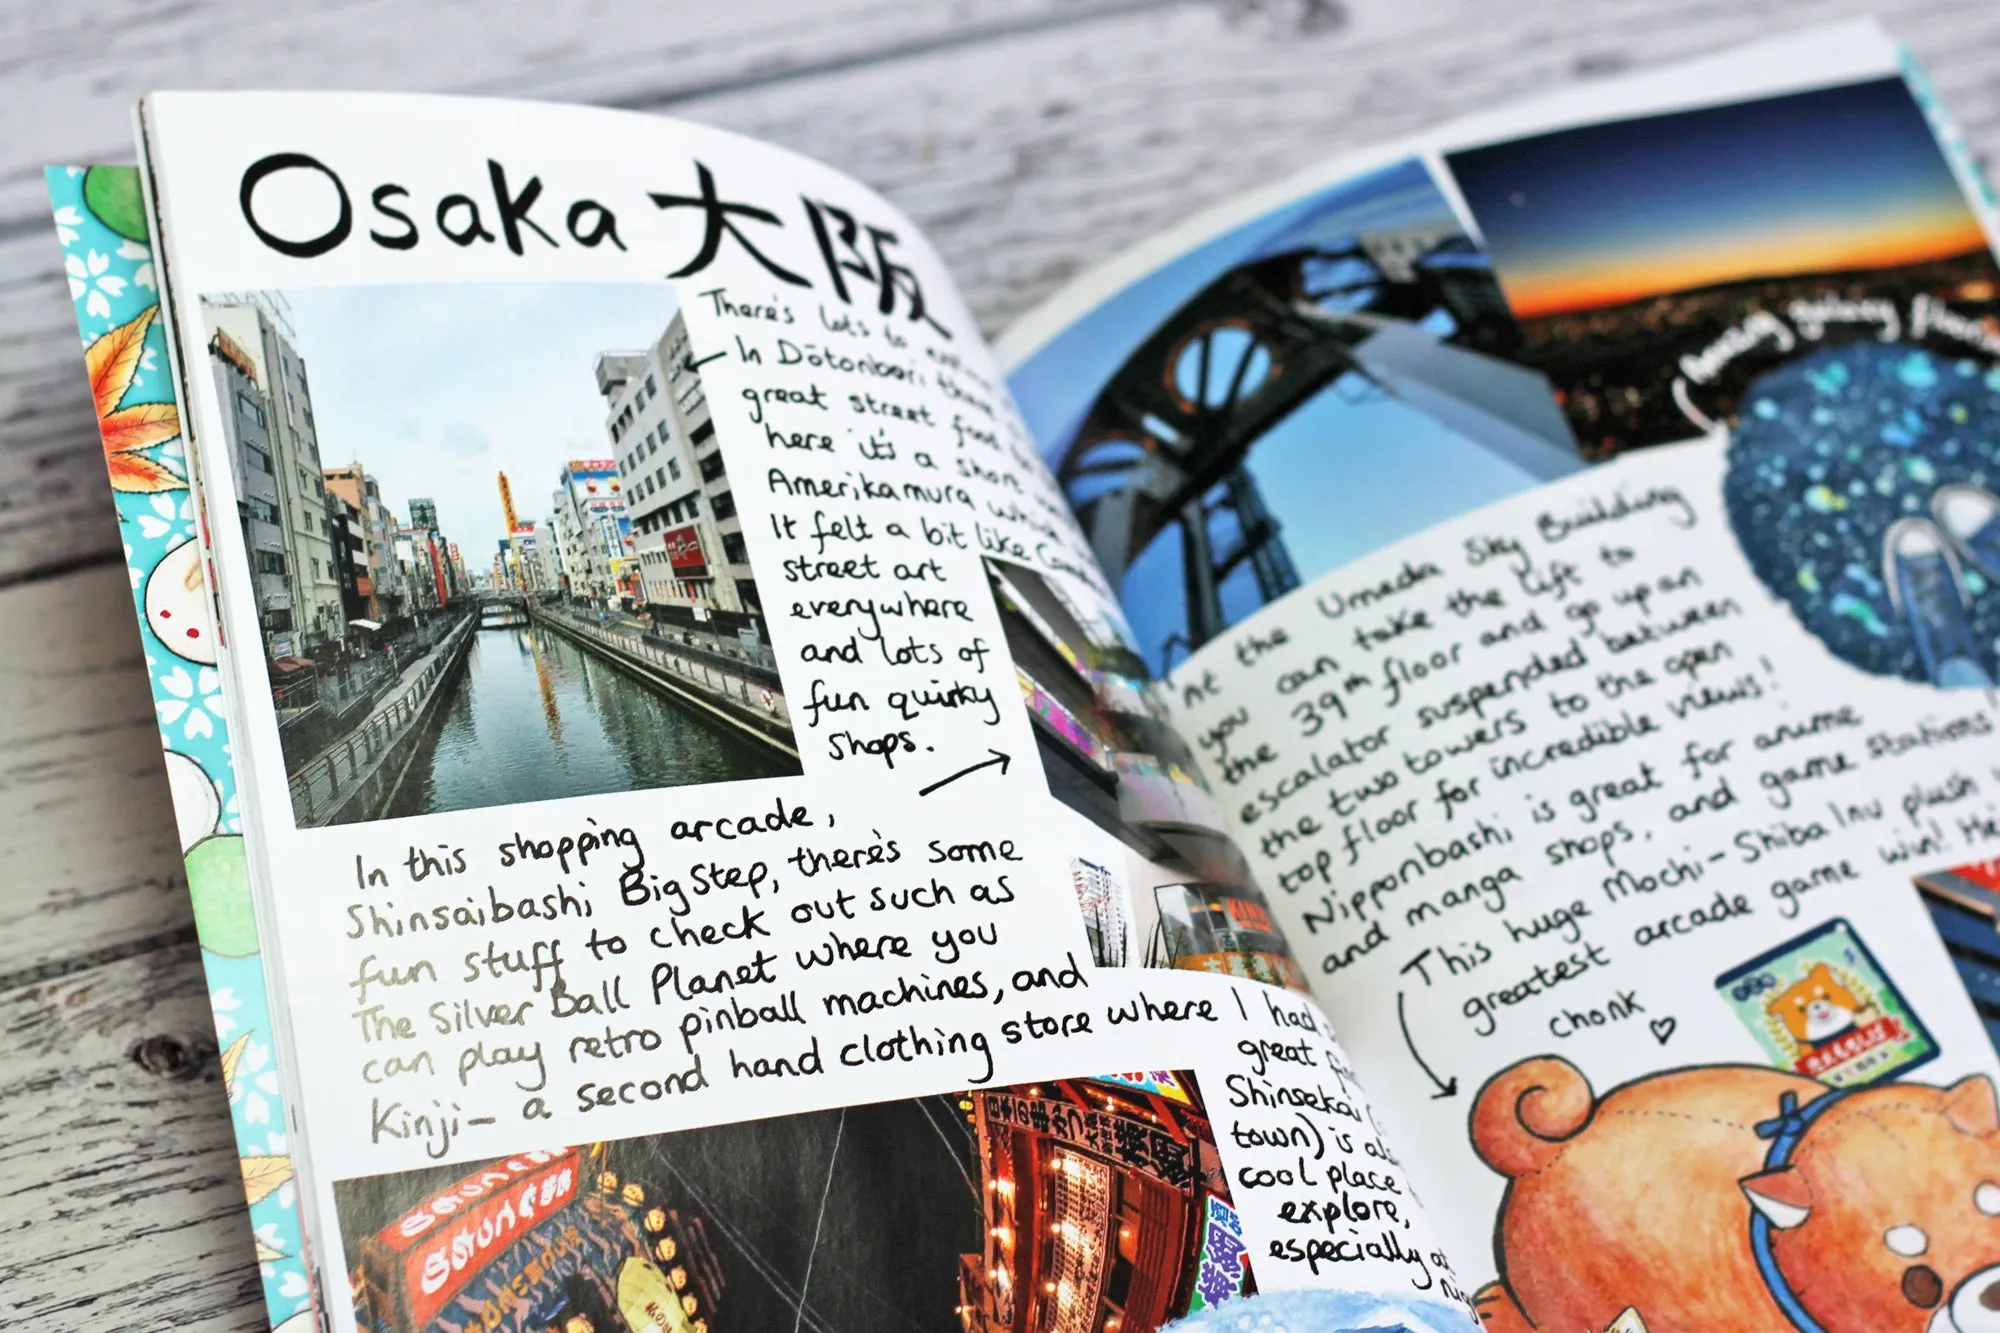 Osaka 大阪
There's lots to
In Dōtonbori
great street food
here it's a short
Amerikamura
It felt a bit like
street art
everywhere
and lots of
fun quirky
shops.
In this shopping arcade,
Shinsaibashi BigStep, there's some
fun stuff to check out such as
The Silver Ball Planet where you
can play retro pinball machines, and
Kinji- a second hand clothing store where I had
great
Shinsekai
town) is
cool place
explore,
especially
galaxy
At the Umeda Sky Building
you can take the lift to
the 39th floor and go up an
escalator suspended between
the two towers to the open
top floor for incredible views!
Nipponbashi is great for anime
and manga shops, and game stations!
This huge Mochi-Shiba Inu plush
greatest arcade game win!
chonk